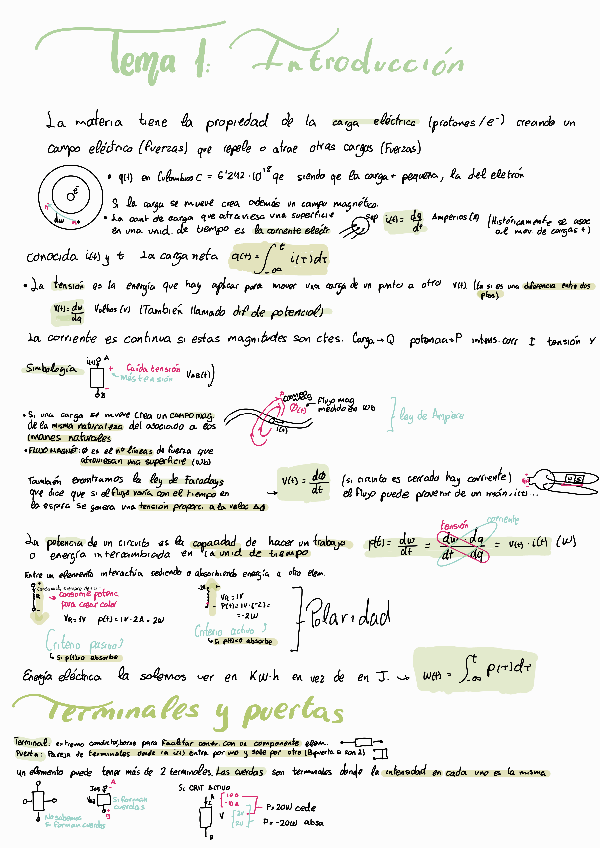 Tema 1: Introducción
La materia tiene la propiedad de la carga eléctrica (protones/e⁻) creando un
campo eléctrico (fuerzas) que repele o atrae otras cargas (Fuerzas)
• q(t) en Culombios C = 6'242·10¹⁸ qe siendo qe la carga + pequeña, la del eletrón
Si la carga se mueve crea además un campo magnético.
• La cant de carga que atraviesa una superficie
en una unid. de tiempo es la corriente eléctr
Sup
i(t) = dq/dt Amperios (A) (Históricamente se asoc
al mov de cargas +)
conocida i(t) y t La carga neta q(t) = ∫ i(τ)dτ
• La tensión es la energía que hay aplicar para mover una carga de un punto a otro v(t). (La si es una diferencia entre dos
ptos)
v(t) = dw/dq Voltios (v) (También llamado dif de potencial)
La corriente es continua si estas magnitudes son ctes. Carga → Q potencia → P intens. corr I tensión V
Simbología
i(t) A
+ Caída tensión
más tensión
- B
• Si una carga se mueve crea un campo mag.
de la misma naturaleza del asociado a los
imanes naturales
campo
Φ(t)
i(t)
Flujo mag
medido en Wb
ley de Ampere
• FLUJO MAGNÉT: Φ es el nº líneas de fuerza que
atraviesan una superficie (Wb)
También encontramos la ley de faradays
que dice que si el flujo varía con el tiempo en
la espira se genera una tensión proporc. a la veloc ΔΦ
→ v(t) = dΦ/dt (si circuito es cerrado hay corriente)
el flujo puede provenir de un imán, i(t)...
tensión corriente
La potencia de un circuito es la capacidad de hacer un trabajo
o energía intercambiada en la unid de tiempo
p(t) = dw/dt = dw/dt dq/dq = v(t)·i(t) (W)
Entre un elemento interactúa cediendo o absorbiendo energía a otro elem.
→ consume potenc
para crear calor
VR = 1V p(t) = 1V·2A = 2W
VR = 1V
P(t) = 1V·(-2) =
= -2W
Polaridad
Criterio pasivo
↳ Si p(t)>0 absorbe
Criterio activo
↳ Si p(t)<0 absorbe
Energía eléctrica la solemos ver en KW·h en vez de en J. → w(t) = ∫ p(τ)dτ
Terminales y puertas
Terminal: extremo conductor, borne para facilitar conex. con un componente elem.
Puerta: Pareja de terminales donde la i(t) entra por uno y sale por otro
un elemento puede tener más de 2 terminales. Las cuerdas son terminales donde la intensidad en cada uno es la misma
No sabemos
si forman cuerdas
A
B
Si forman
cuerdas
Si CRIT ACTIVO
A
B
V
10A
-10A
2V
2V
P = 20W cede
P = -20W absa